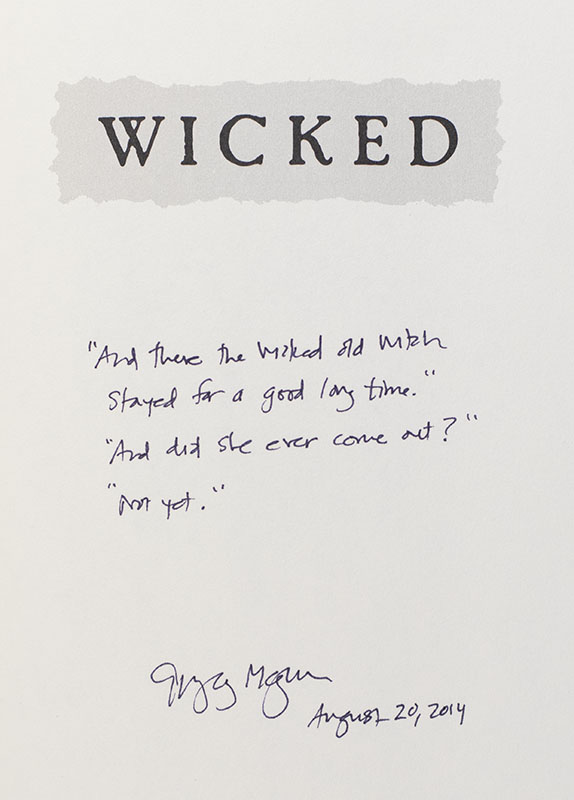 WICKED
"And there the wicked old witch
stayed for a good long time."
"And did she ever come out?"
"Not yet."
Gregory Maguire
August 20, 2014